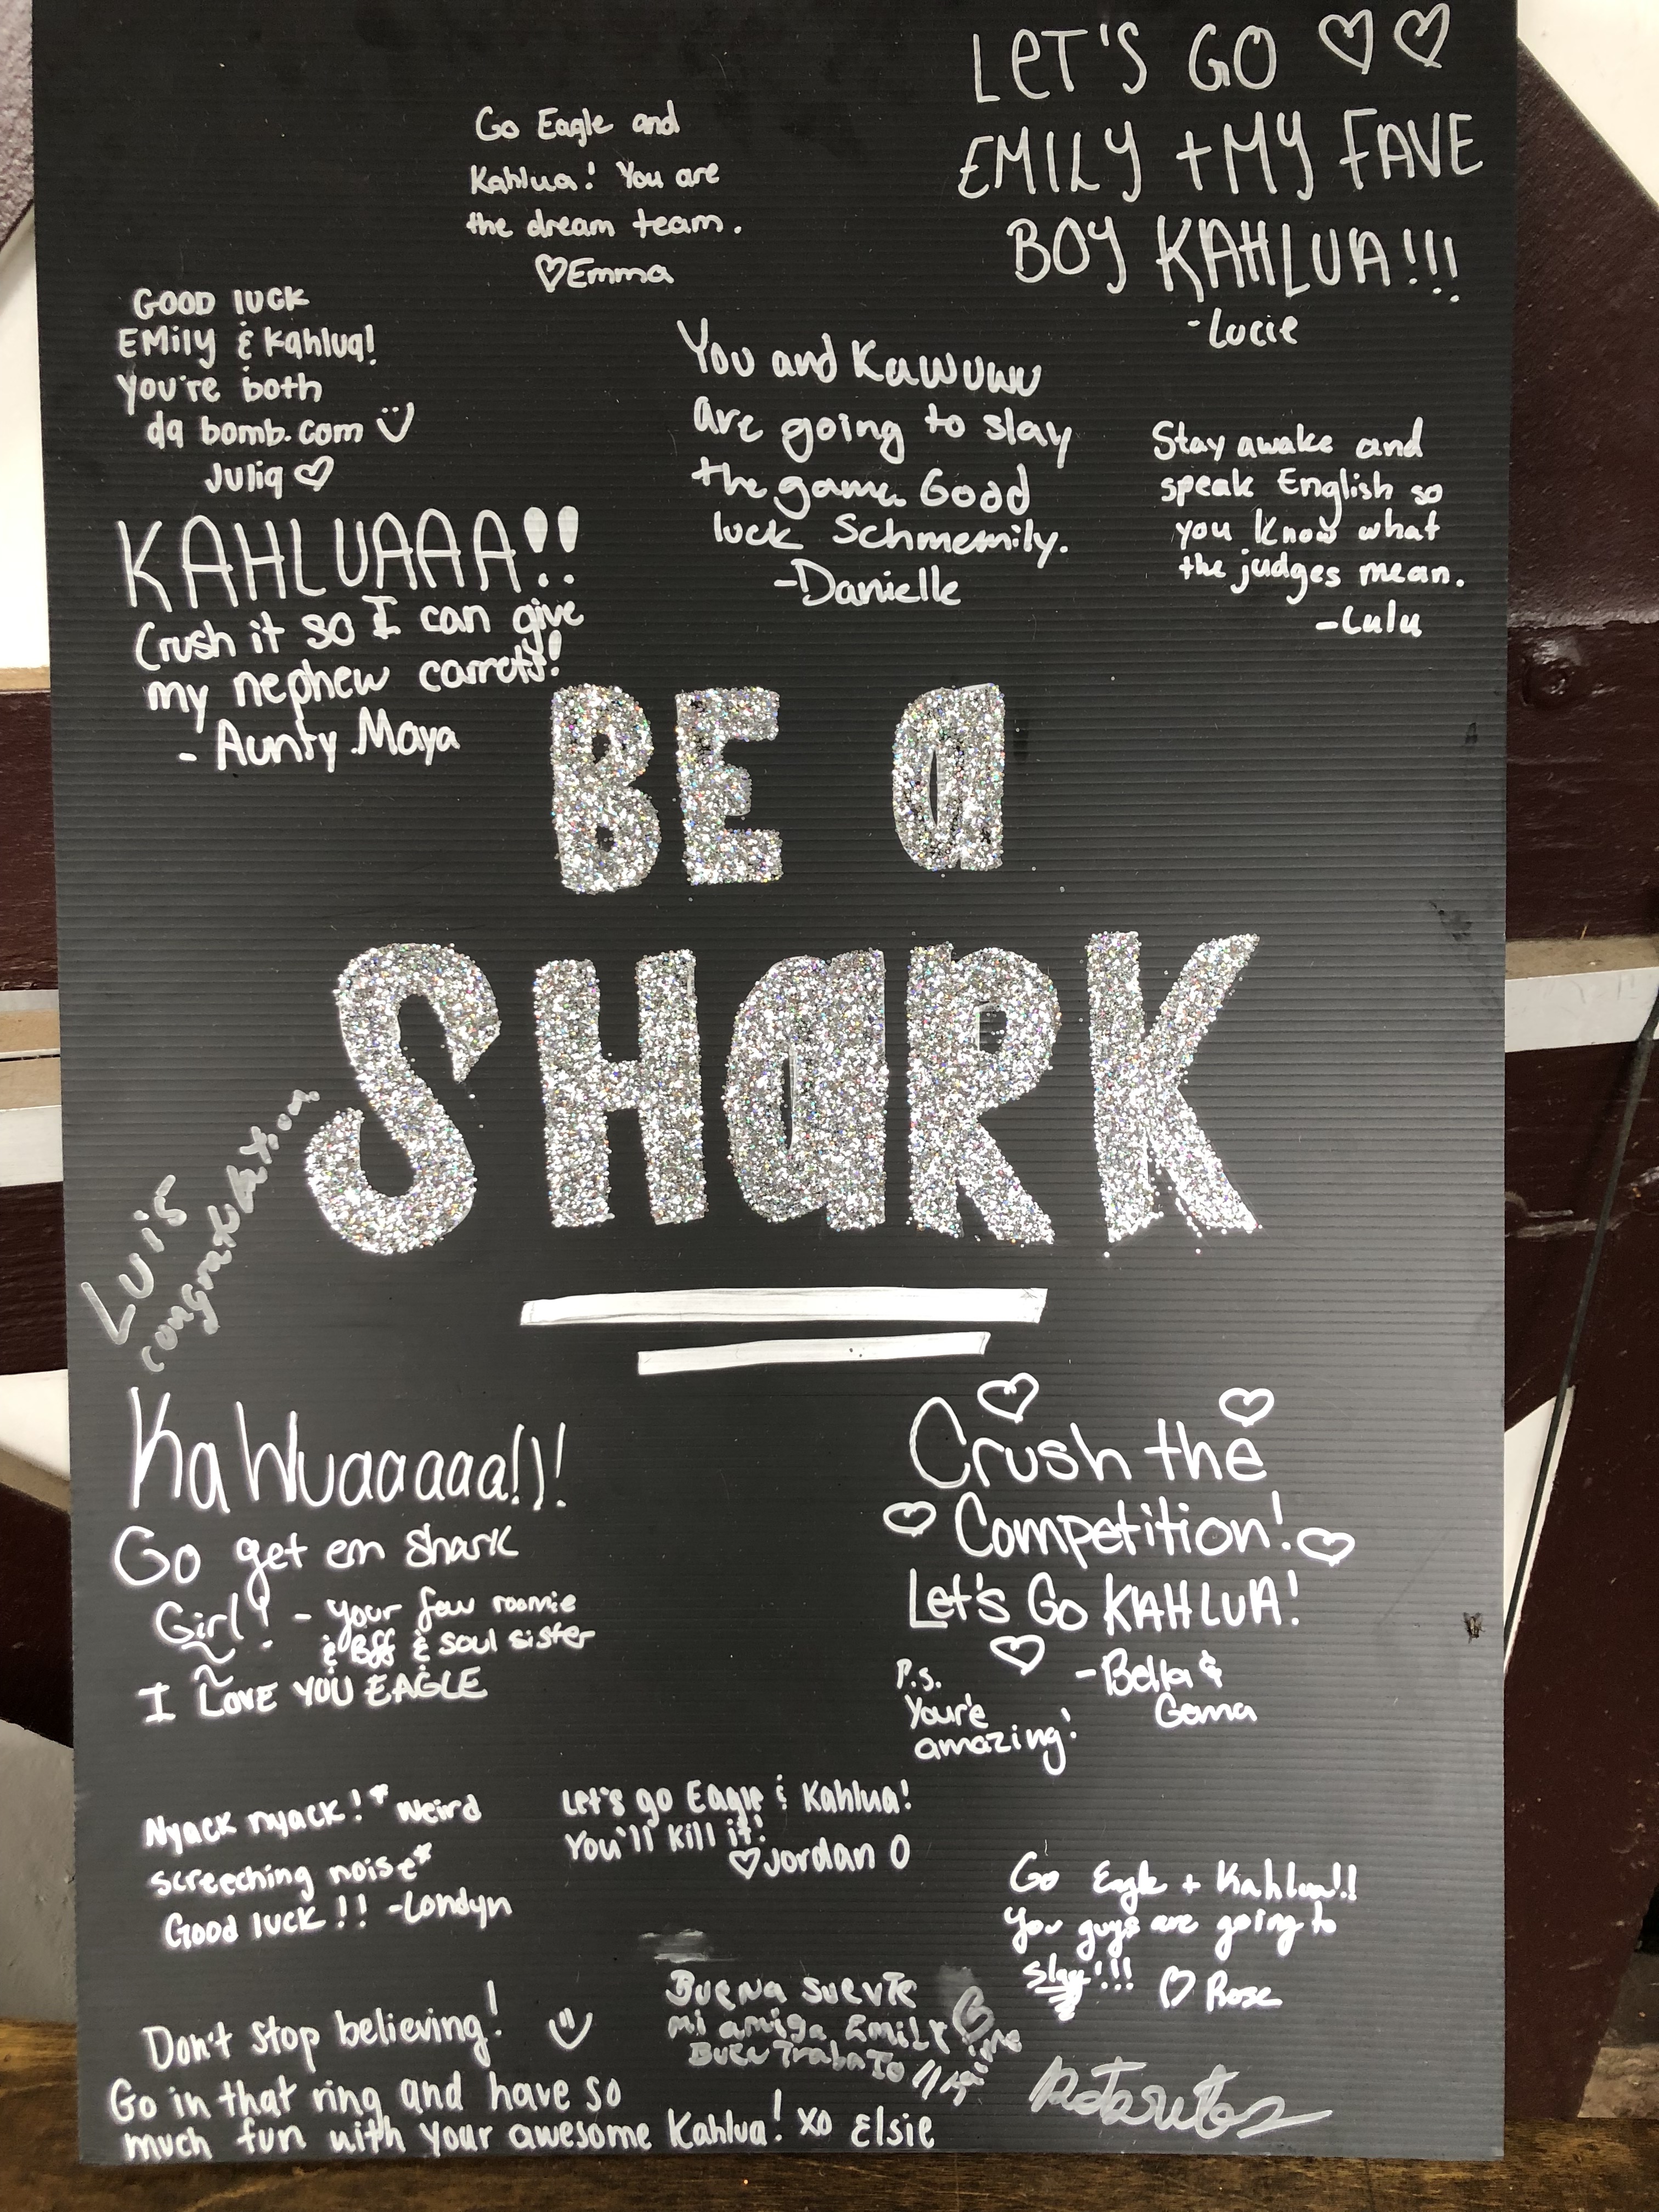 LET'S GO
EMILY + MY FAVE
BOY KAHLUA!!!
-Lucie
Go Eagle and
Kahlua! You are
the dream team.
♡Emma
GOOD luck
EMily & Kahlua!
you're both
da bomb.com
Julia ♡
You and Kawuwu
are going to slay
the game. Good
luck Schmemily.
-Danielle
Stay awake and
speak English so
you know what
the judges mean.
-Lulu
KAHLUAAA!!
Crush it so I can give
my nephew carrots!
- Aunty Maya
BE a
SHaRK
Luis
congratulation
KaWuaaaaa!!!
Go get em shark
Girl! - your fav roomie
& Bff & soul sister
I LOVE YOU EAGLE
Crush the
Competition!
Let's Go KAHLUA!
-Bella &
Gema
P.S.
You're
amazing!
Nyack nyack! *weird
screeching noise*
Good luck!! -Londyn
Let's go Eagle & Kahlua!
You'll kill it!
♡Jordan O
Go Eagle + Kahlua!!
You guys are going to
slay!!!! ♡ Rose
Buena suerte
mi amiga Emily
Buen Trabajo
Don't stop believing!
Go in that ring and have so
much fun with your awesome Kahlua! xo Elsie